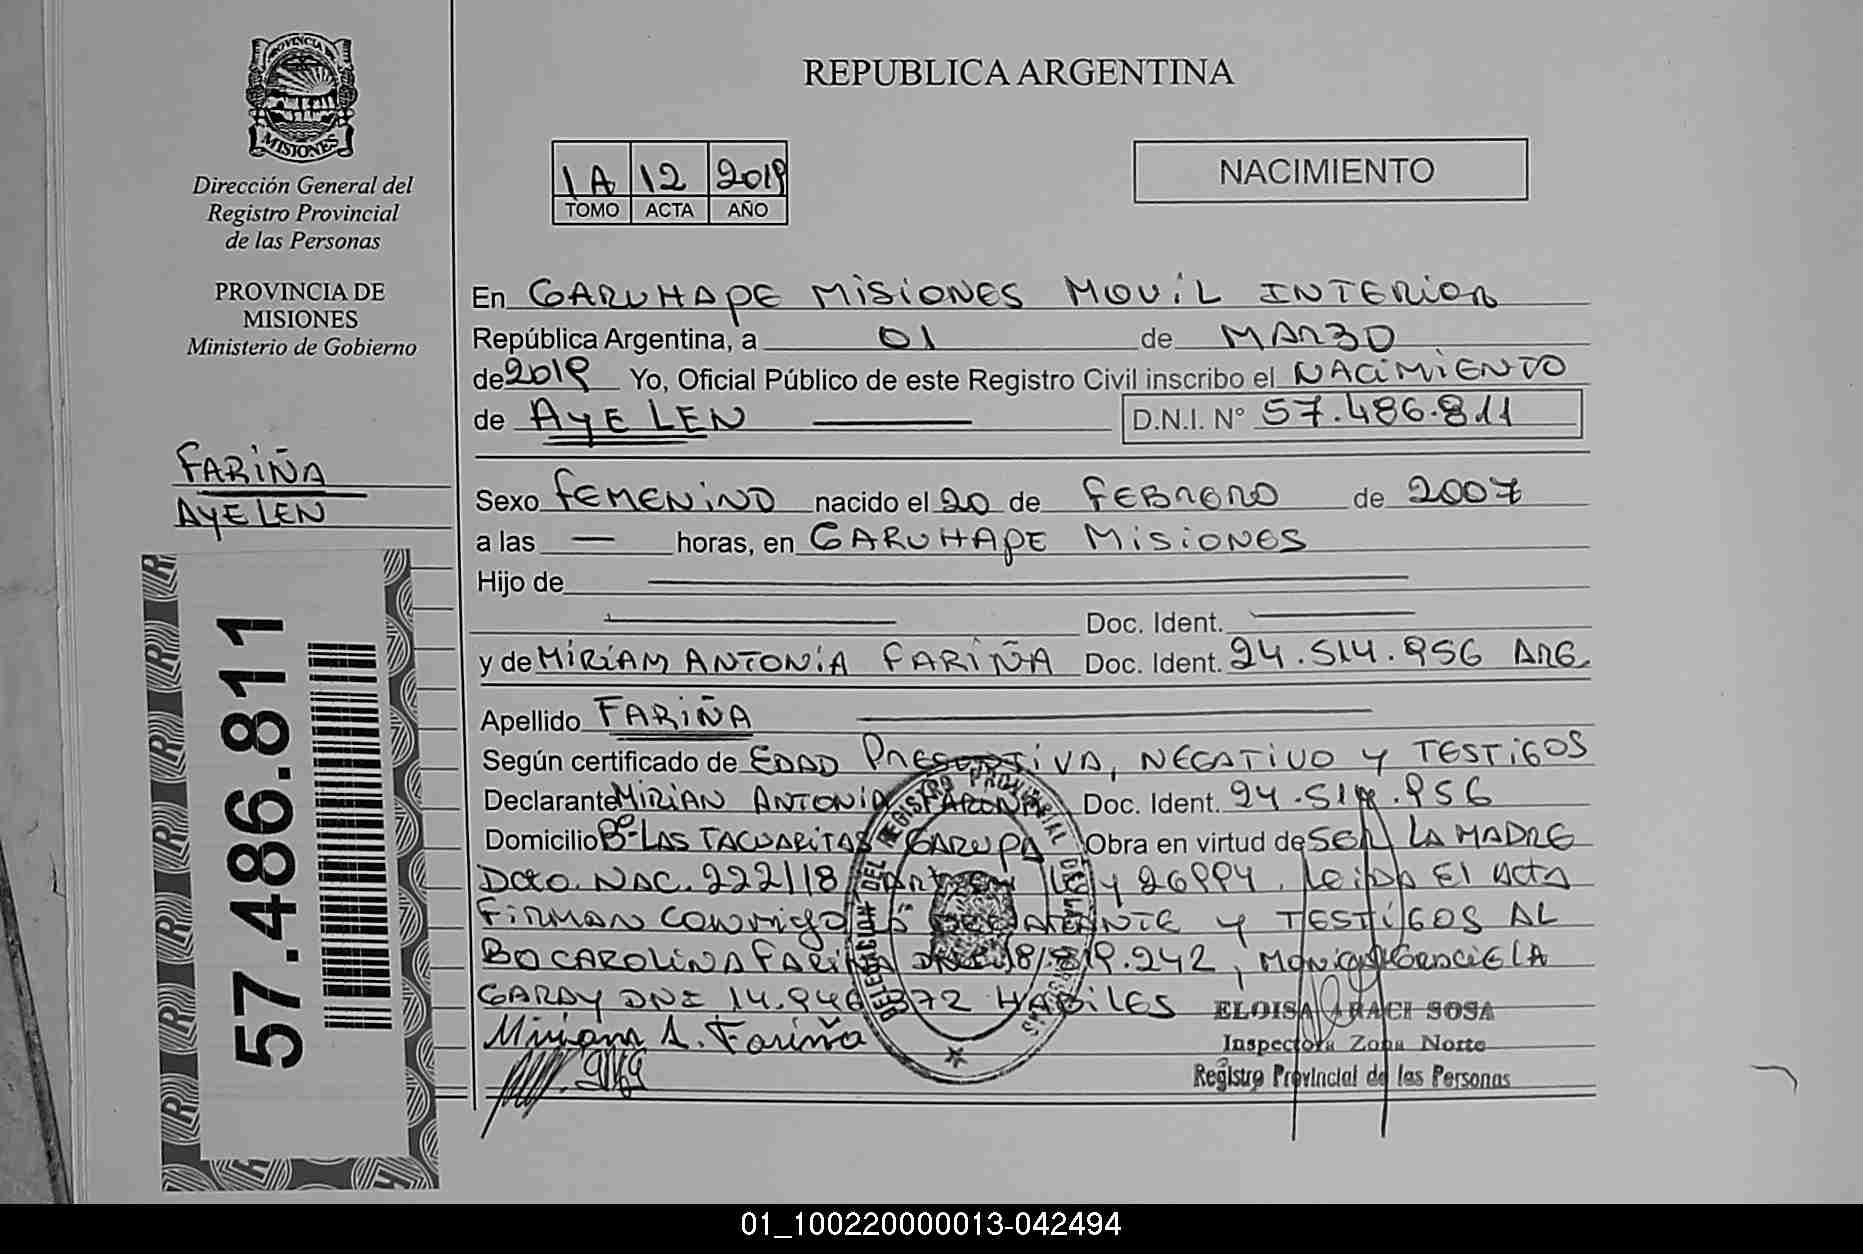 PROVINCIA DE
MISIONES
Dirección General del
Registro Provincial
de las Personas
PROVINCIA DE
MISIONES
Ministerio de Gobierno
FARIÑA
AYELEN
57.486.811
REPUBLICA ARGENTINA
1A 12 2019
TOMO ACTA AÑO
NACIMIENTO
En GARUHAPE MISIONES MOVIL INTERIOR
República Argentina, a 01 de MARZO
de 2019 Yo, Oficial Público de este Registro Civil inscribo el NACIMIENTO
de AYELEN D.N.I. N° 57.486.811
Sexo FEMENINO nacido el 20 de FEBRERO de 2007
a las — horas, en GARUHAPE MISIONES
Hijo de
Doc. Ident.
y de MIRIAM ANTONIA FARIÑA Doc. Ident. 24.514.956 ARG
Apellido FARIÑA
Según certificado de EDAD PRESUNTIVA, NEGATIVO Y TESTIGOS
Declarante MIRIAN ANTONIA Doc. Ident. 24.514.956
Domicilio B°- LAS TACUARITAS GARUPA Obra en virtud de SER LA MADRE
DCTO. NAC. 222/18 LEY 26994. Leida El Acta
FIRMAN CONMIGO Y TESTIGOS AL
BO CAROLINA FARIÑA .242, MONICA GRACIELA
GARAY DNI 14.946.372 HABILES
Miriam A. Fariña
DELEGACION DEL REGISTRO PROVINCIAL DE LAS PERSONAS
ELOISA ARACI SOSA
Inspectora Zona Norte
Registro Provincial de las Personas
01_100220000013-042494